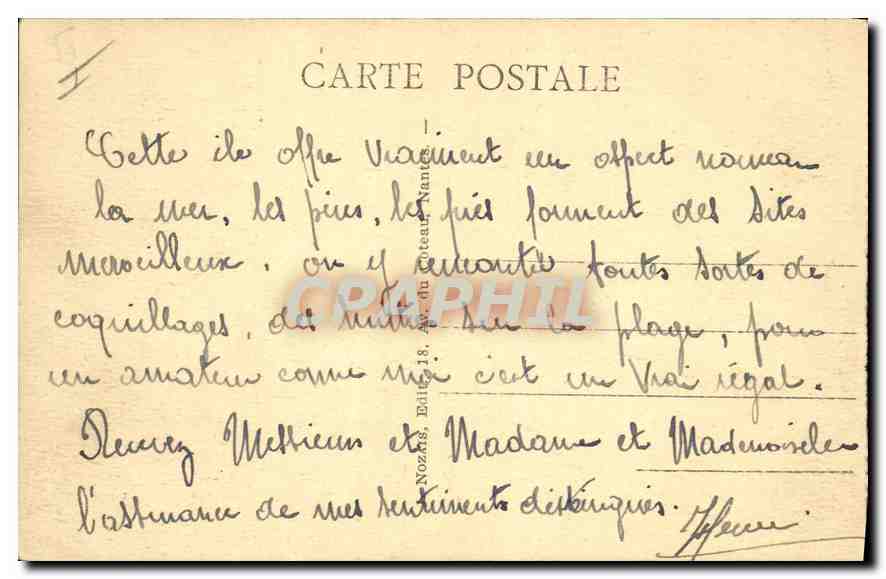 CARTE POSTALE
Cette ile offre vraiment un aspect nouveau
la mer, les pins, les prés forment des sites
merveilleux. on y rencontre toutes sortes de
coquillages, des huitres sur la plage, pour
un amateur comme moi c'est un vrai régal.
Recevez Messieurs et Madame et Mademoiselle
l'assurance de mes sentiments distingués.
Nozais, Edit., 18, Av. du Coteau, Nantes.
CPAPHIL